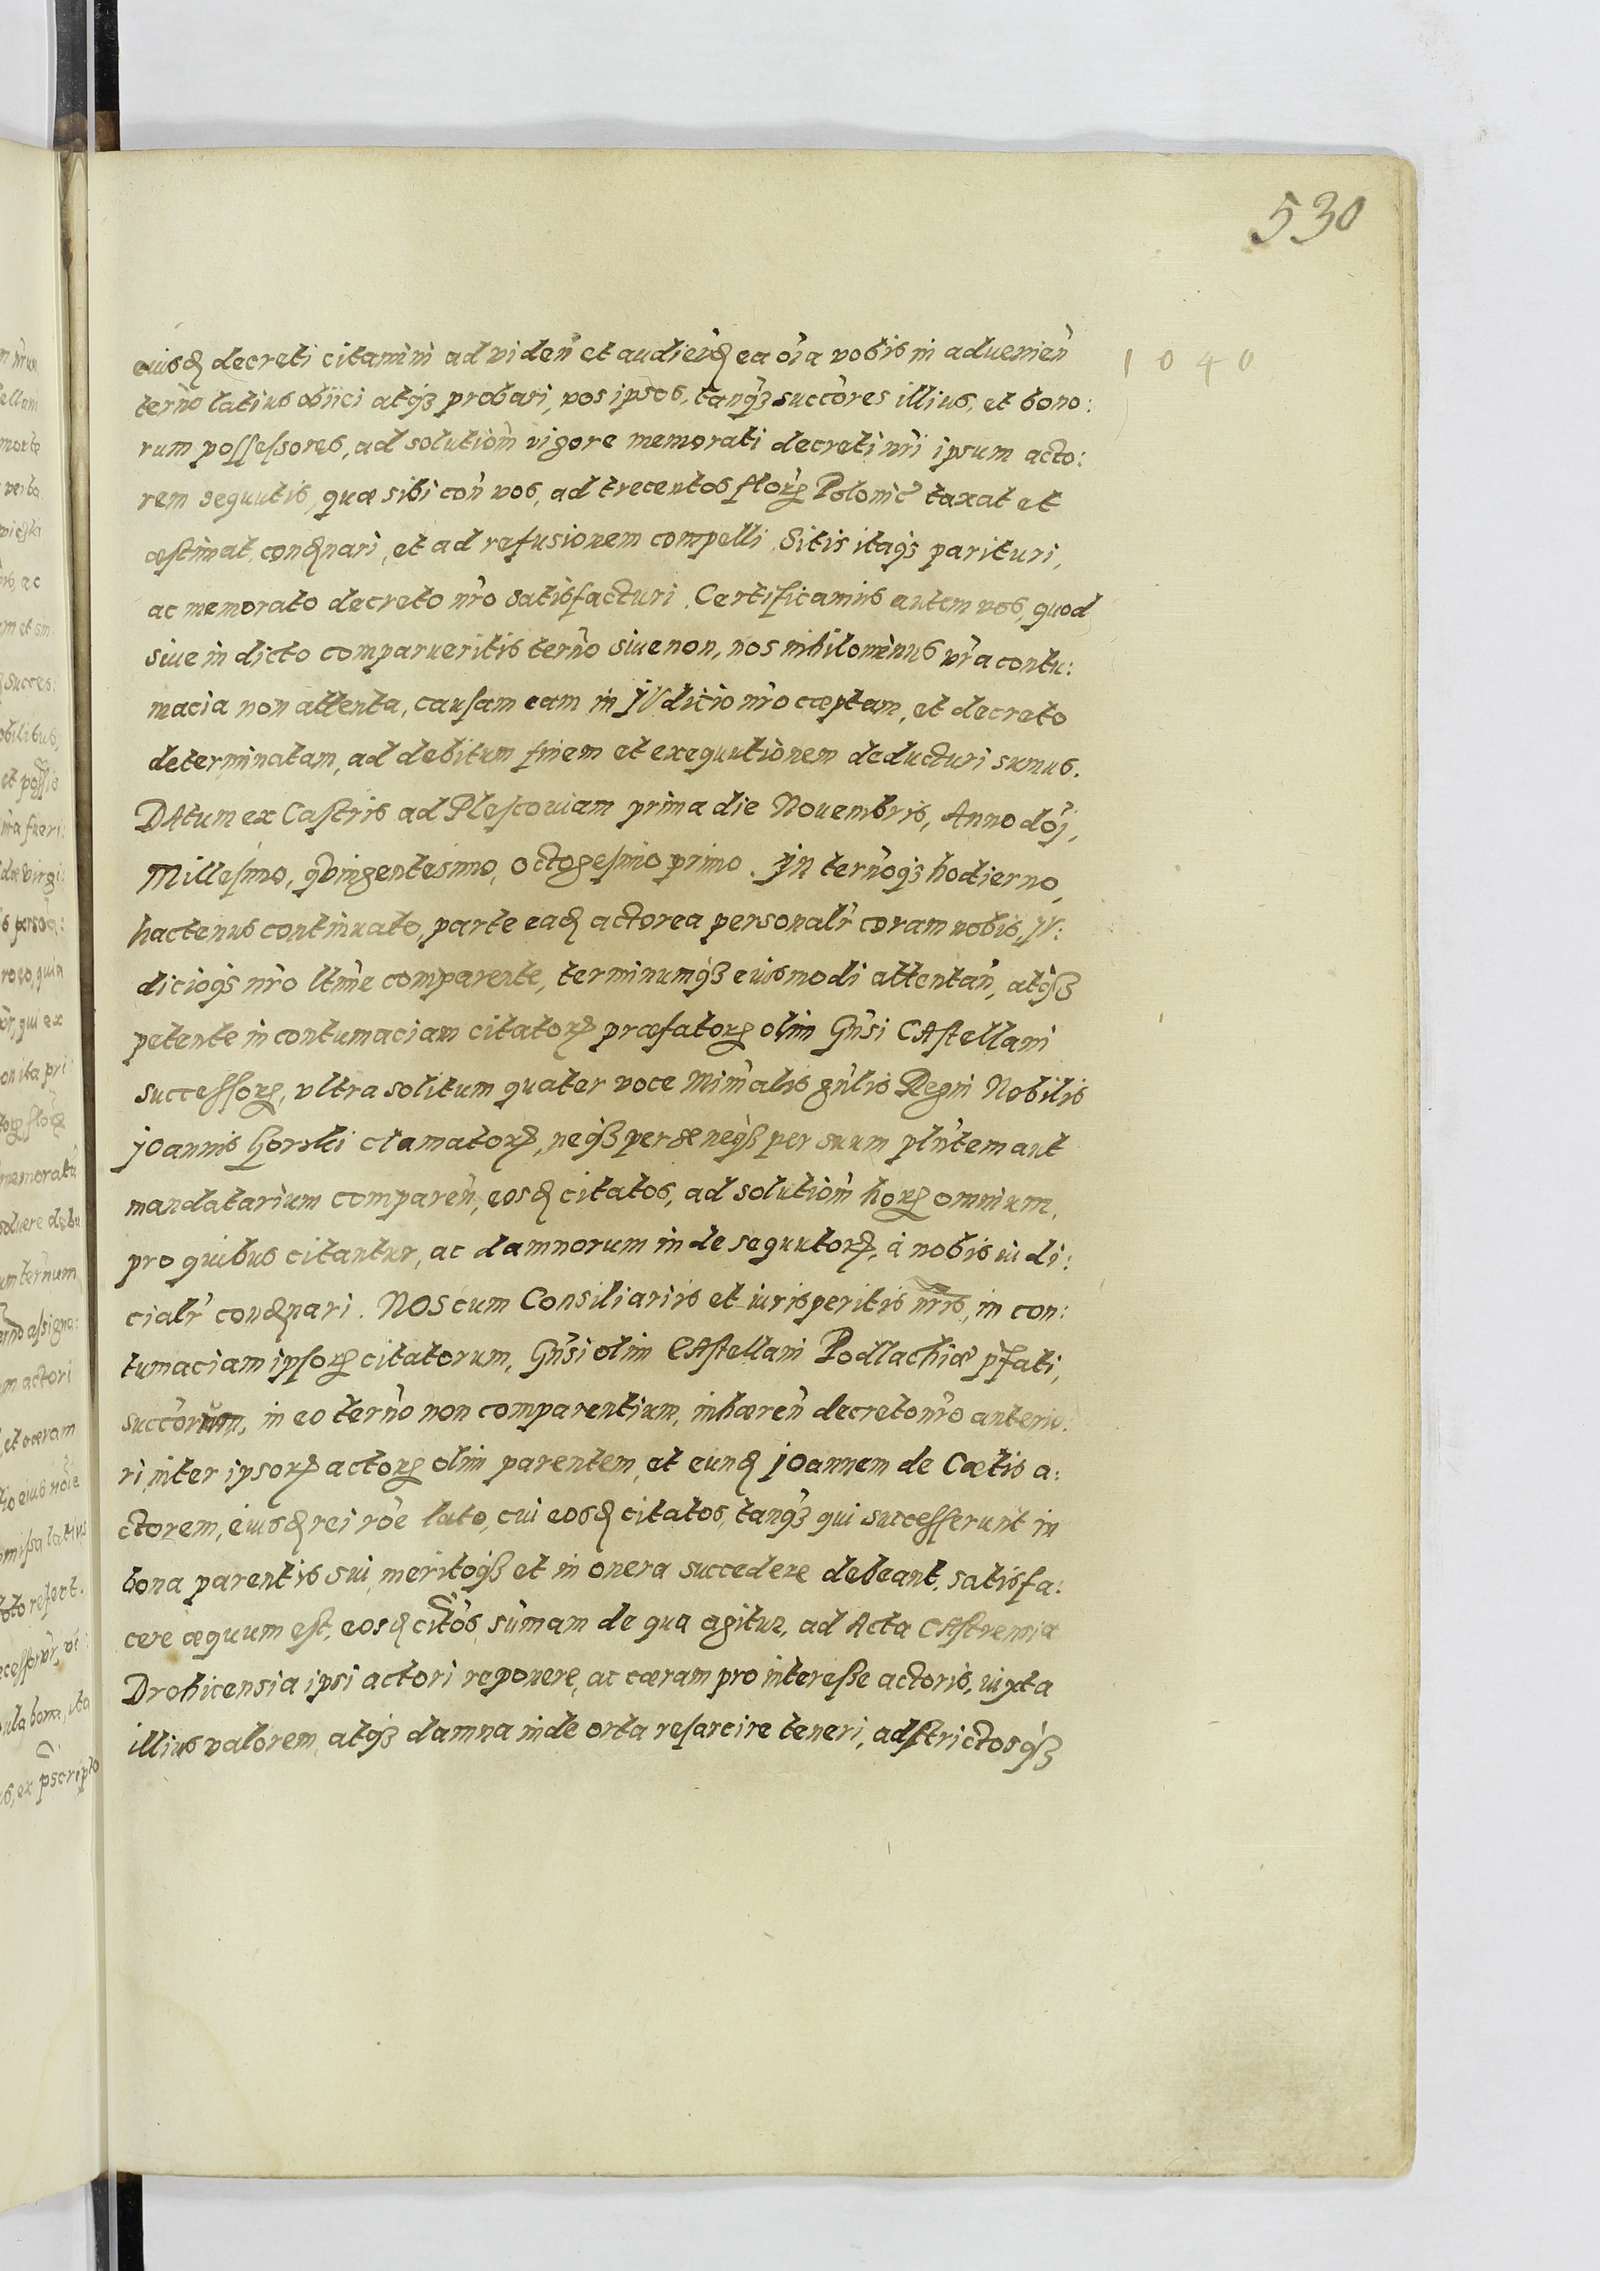 530
1040
eiusđ decreti citamini ad viden̄ et audienđ ea oīa vobis in aduenien̄
term̄o latius obiici atqȝ probari, vos ipsos, tanqȝ succ̄ores illius, et bono:
rum possessores, ad solutiōm vigore memorati decreti nr̄i ipsum acto:
rem sequutis, quæ sibi con̄ vos, ad trecentos flor̄ꝝ Polonic̄ taxat et
æstimat, conđnari, et ad refusionem compelli. Sitis itaqȝ parituri,
ac memorato decreto nr̄o satisfacturi. Certificamus autem vos, quod
siue in dicto comparueritis term̄o siue non, nos nihilominus vr̄a contu:
macia non attenta, causam eam in JVdicio nr̄o cœptam, et decreto
determinatam, ad debitum finem et exequutionem deducturi sumus.
DAtum ex Castris ad Plescouiam prima die Nouembris, Anno dōj,
Millesimo, qVingentesimo, octogesimo primo. JN term̄oqȝ hodierno,
hactenus continuato, parte eađ actorea personalr̄ coram nobis, JV:
dicioqȝ nr̄o ltīme comparente, terminumqȝ eiusmodi attentan̄, atqȝ
petente in contumaciam citatorꝝ præfatorꝝ olim Gn̄si CAstellani
successorꝝ, vltra solitum quater voce Min̄ralis gn̄lis Regni Nobilis
JOannis Horski clamatorꝝ, neqȝ per se neqȝ per suum pln̄tem aut
mandatarium comparen̄, eosđ citatos, ad solutiōm horꝝ omnium,
pro quibus citantur, ac damnorum inde sequutorꝝ, à nobis iudi:
cialr̄ conđnari. NOS cum Consiliariis et iurisperitis nr̄is, in con:
tumaciam ipsorꝝ citatorum, Gn̄si olim CAstellani Podlachiæ p̄fati,
succ̄orum, in eo term̄o non comparentium, inhæren̄ decreto nr̄o anterio:
ri, inter ipsorꝝ actorꝝ olim parentem, et eunđ JOannem de Cætis a:
ctorem, eiusđ rei rōe lato, cui eosđ citatos, tanqȝ qui successerunt in
bona parentis sui, meritoqȝ et in onera succedere debeant, satisfa:
cere æquum est, eosđ citōs, sum̄am de qua agitur, ad Acta CAstrensia
Drohicensia ipsi actori reponere, ac cæram pro interesse actoris, iuxta
illius valorem, atqȝ damna inde orta resarcire teneri, adstrictosqȝ